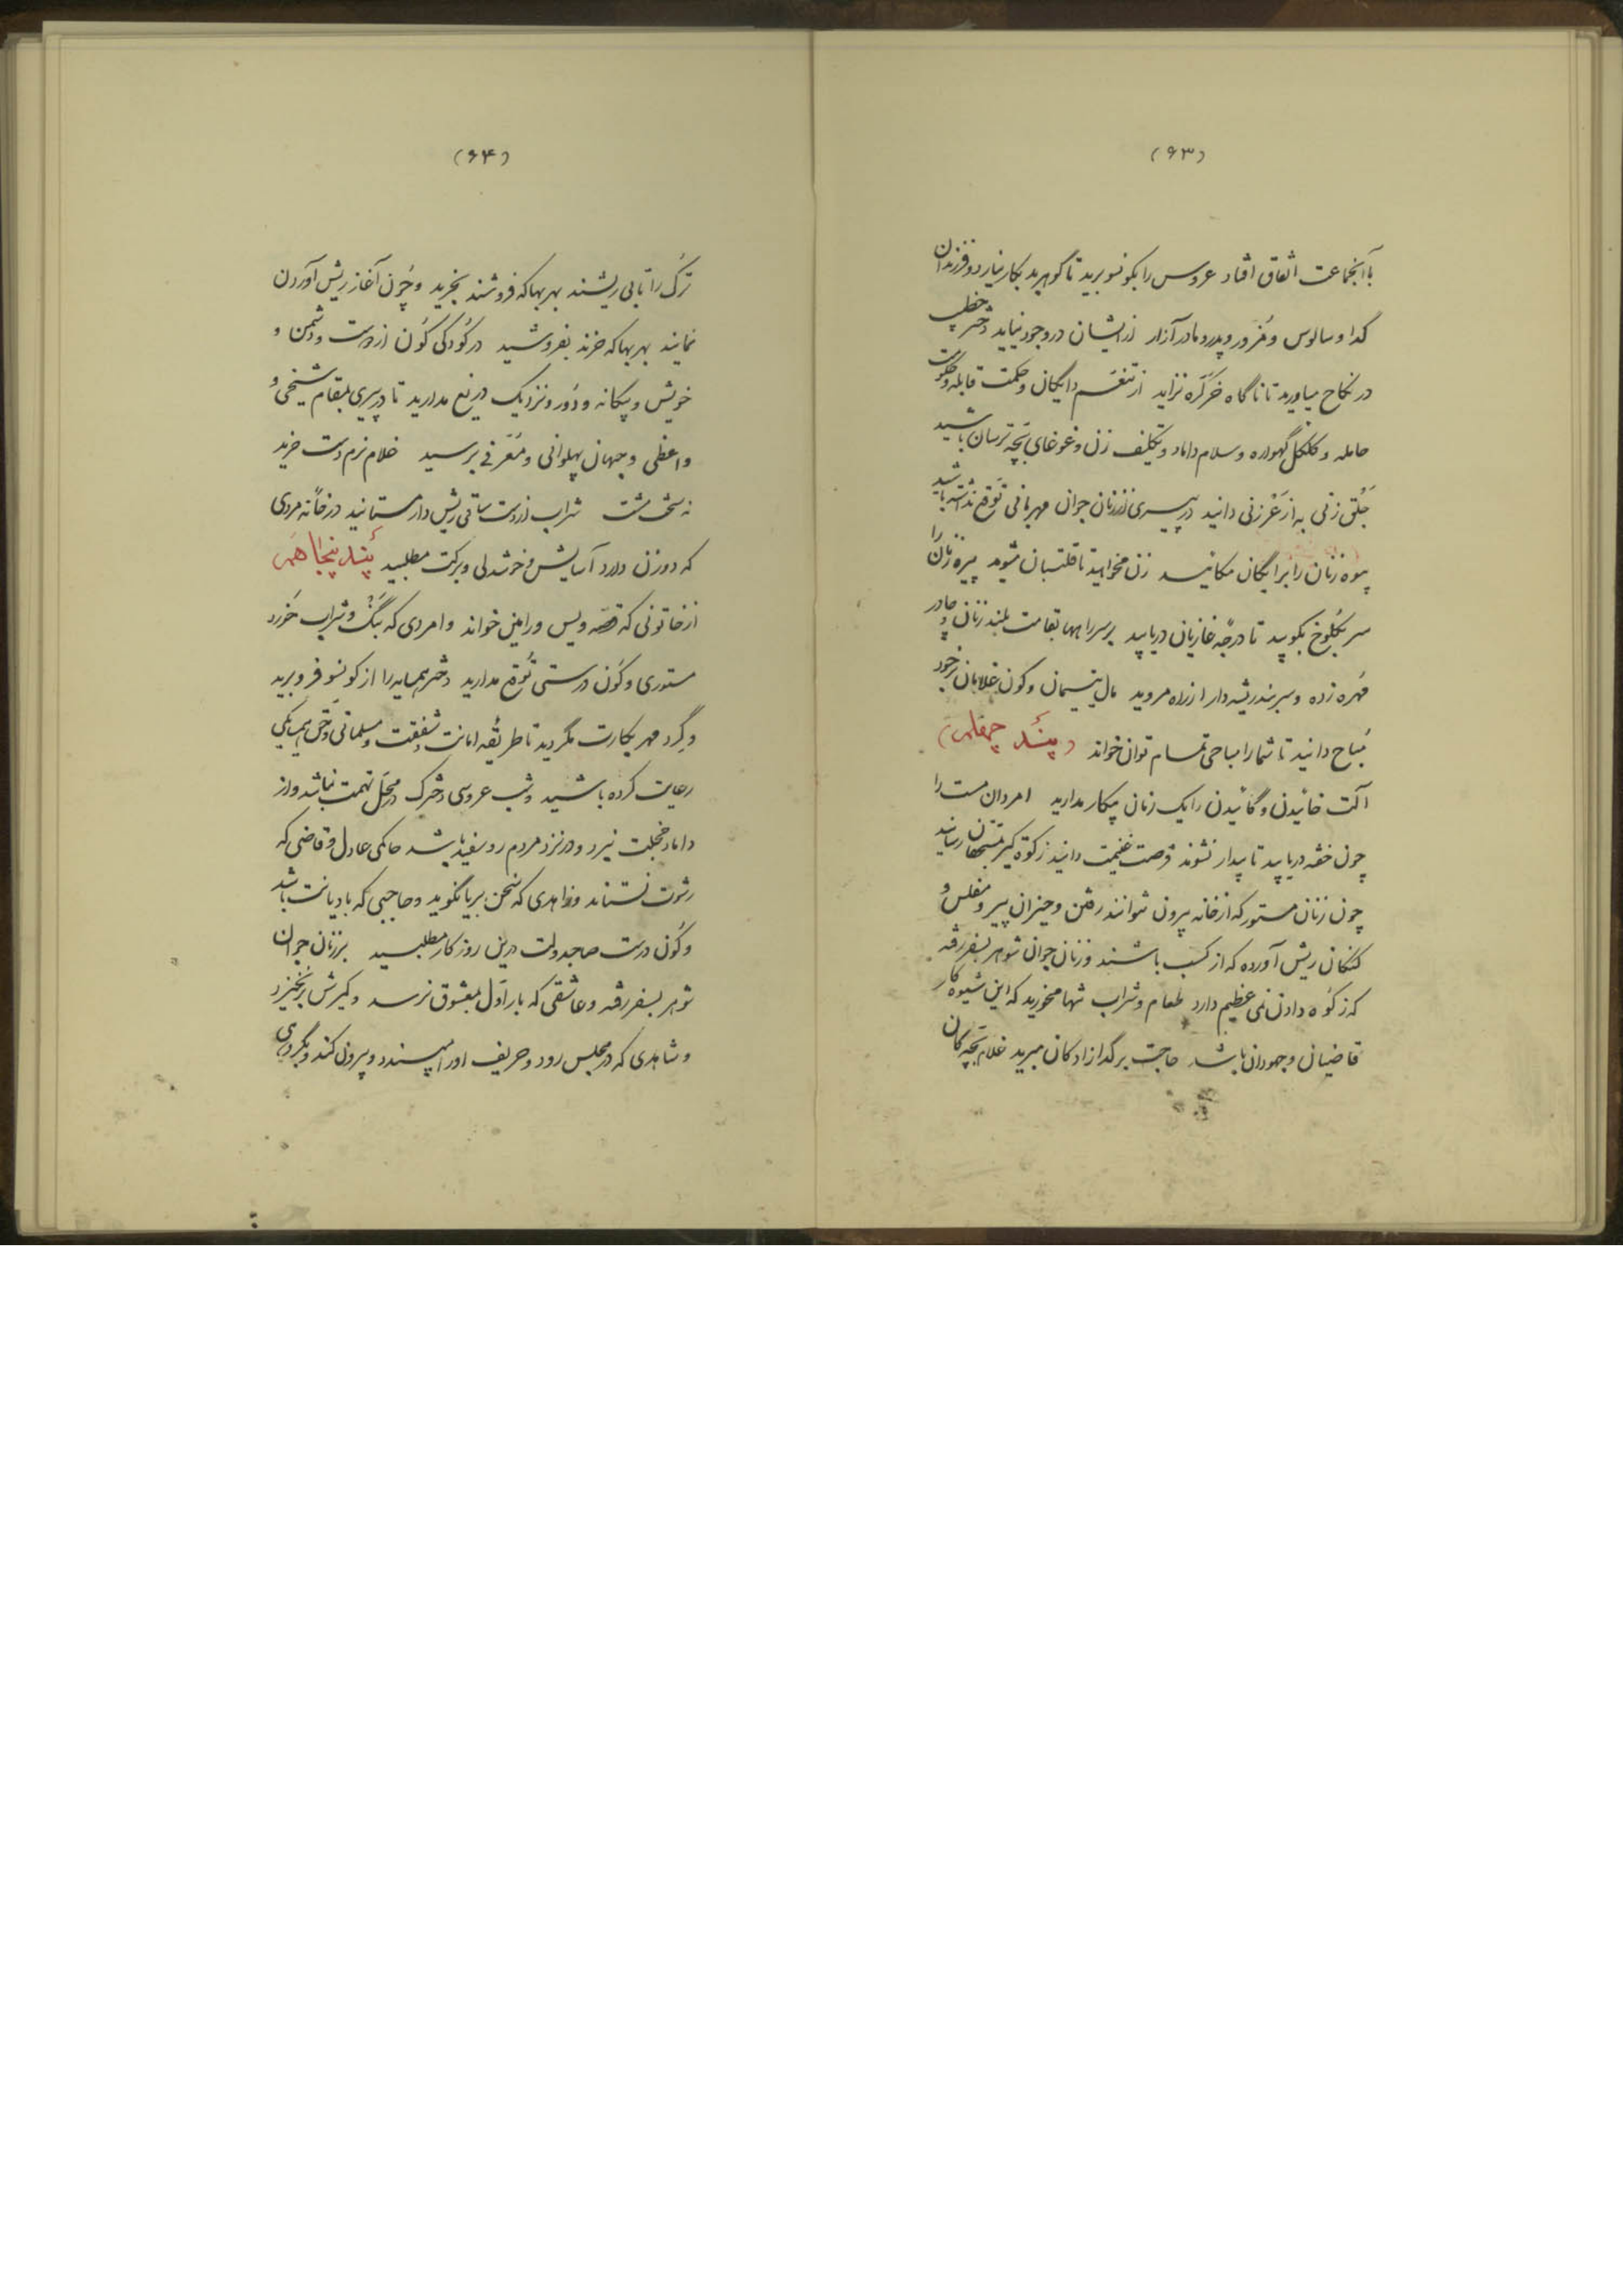 (۶۳)
باآنجماعت اتفاق افتاد عروس را بکونسو برید تا گوهر بد بکار نیارد و فرزندان
گدا و سالوس و مزور و پدر و مادر آزار از ایشان در وجود نیاید دختر خطیب
در نکاح میاورید تا ناگاه خر کره نزاید از تنعم دایگان و حکمت قابله و حکومت
حامله و کلکل گهواره و سلام داماد و تکلیف زن و غوغای بچه ترسان باشید
جلق زنی به از غر زنی دانید در پیری از زنان جوان مهربانی توقع نداشته باشید
بیوه زنان را برایگان مگائید زن مخواهید تا قلتبان مشوید پیره زنان را
سر بکلوخ بکوبید تا درجه غازیان دریابید بر سر راهها بقامت بلند زنان و چادر
مهره زده و سربند ریشه دار از راه مروید مال یتیمان و کون غلامان بر خود
مباح دانید تا شما را مباحی تمام توان خواند (پند چهلم)
آلت خائیدن و گائیدن را یک زمان بیکار مدارید امردان مست را
چون خفته دریابید تا بیدار نشوند فرصت غنیمت دانید زکوة کیر بمستحقان رسانید
چون زنان مستور که از خانه بیرون نتوانند رفتن و حیزان پیر و مفلس و
کنکان ریش آورده که از کسب باشند و زنان جوان شوهر بسفر رفته
که زکوه دادن یمنی عظیم دارد طعام و شراب تنها مخورید که این شیوه کار
قاضیان و جهودان باشد حاجت بر گدازادگان مبرید غلام بچه گان
(۶۴)
ترک را تا بی ریشند بهر بها که فروشند بخرید و چون آغاز ریش آوردن
نمایند بهر بها که خرند بفروشید در کودکی کون از دوست و دشمن و
خویش و بیگانه و دور و نزدیک دریغ مدارید تا در پیری بمقام شیخی و
واعظی و جهان پهلوانی و معرفی برسید غلام نرم دست خرید
نه سخت مشت شراب از دست ساقی ریش دار مستانید در خانه مردی
که دو زن دارد آسایش و خوشدلی و برکت مطلبید پند پنجاهم
از خاتونی که قصه ویس و رامین خواند و امردی که بنگ و شراب خورد
مستوری و کون درستی توقع مدارید دختر همسایه را از کونسو فرو برید
و گرد مهر بکارت مگردید تا طریقه امانت و شفقت و مسلمانی و حق همسایگی
رعایت کرده باشید و شب عروسی دخترک در محل تهمت نباشد و از
داماد خجلت نبرد و در نزد مردم رو سفید باشد حاکمی عادل و قاضی که
رشوت نستاند و زاهدی که سخن بریا نگوید و حاجبی که با دیانت باشد
و کون درست صاحبدولت در این روزگار مطلبید بر زنان جوان
شوهر بسفر رفته و عاشقی که بار اول بمعشوق نرسد و کیرش برنخیزد
و شاهدی که در مجلس رود و حریف او را نپسندد و بیرون کند و